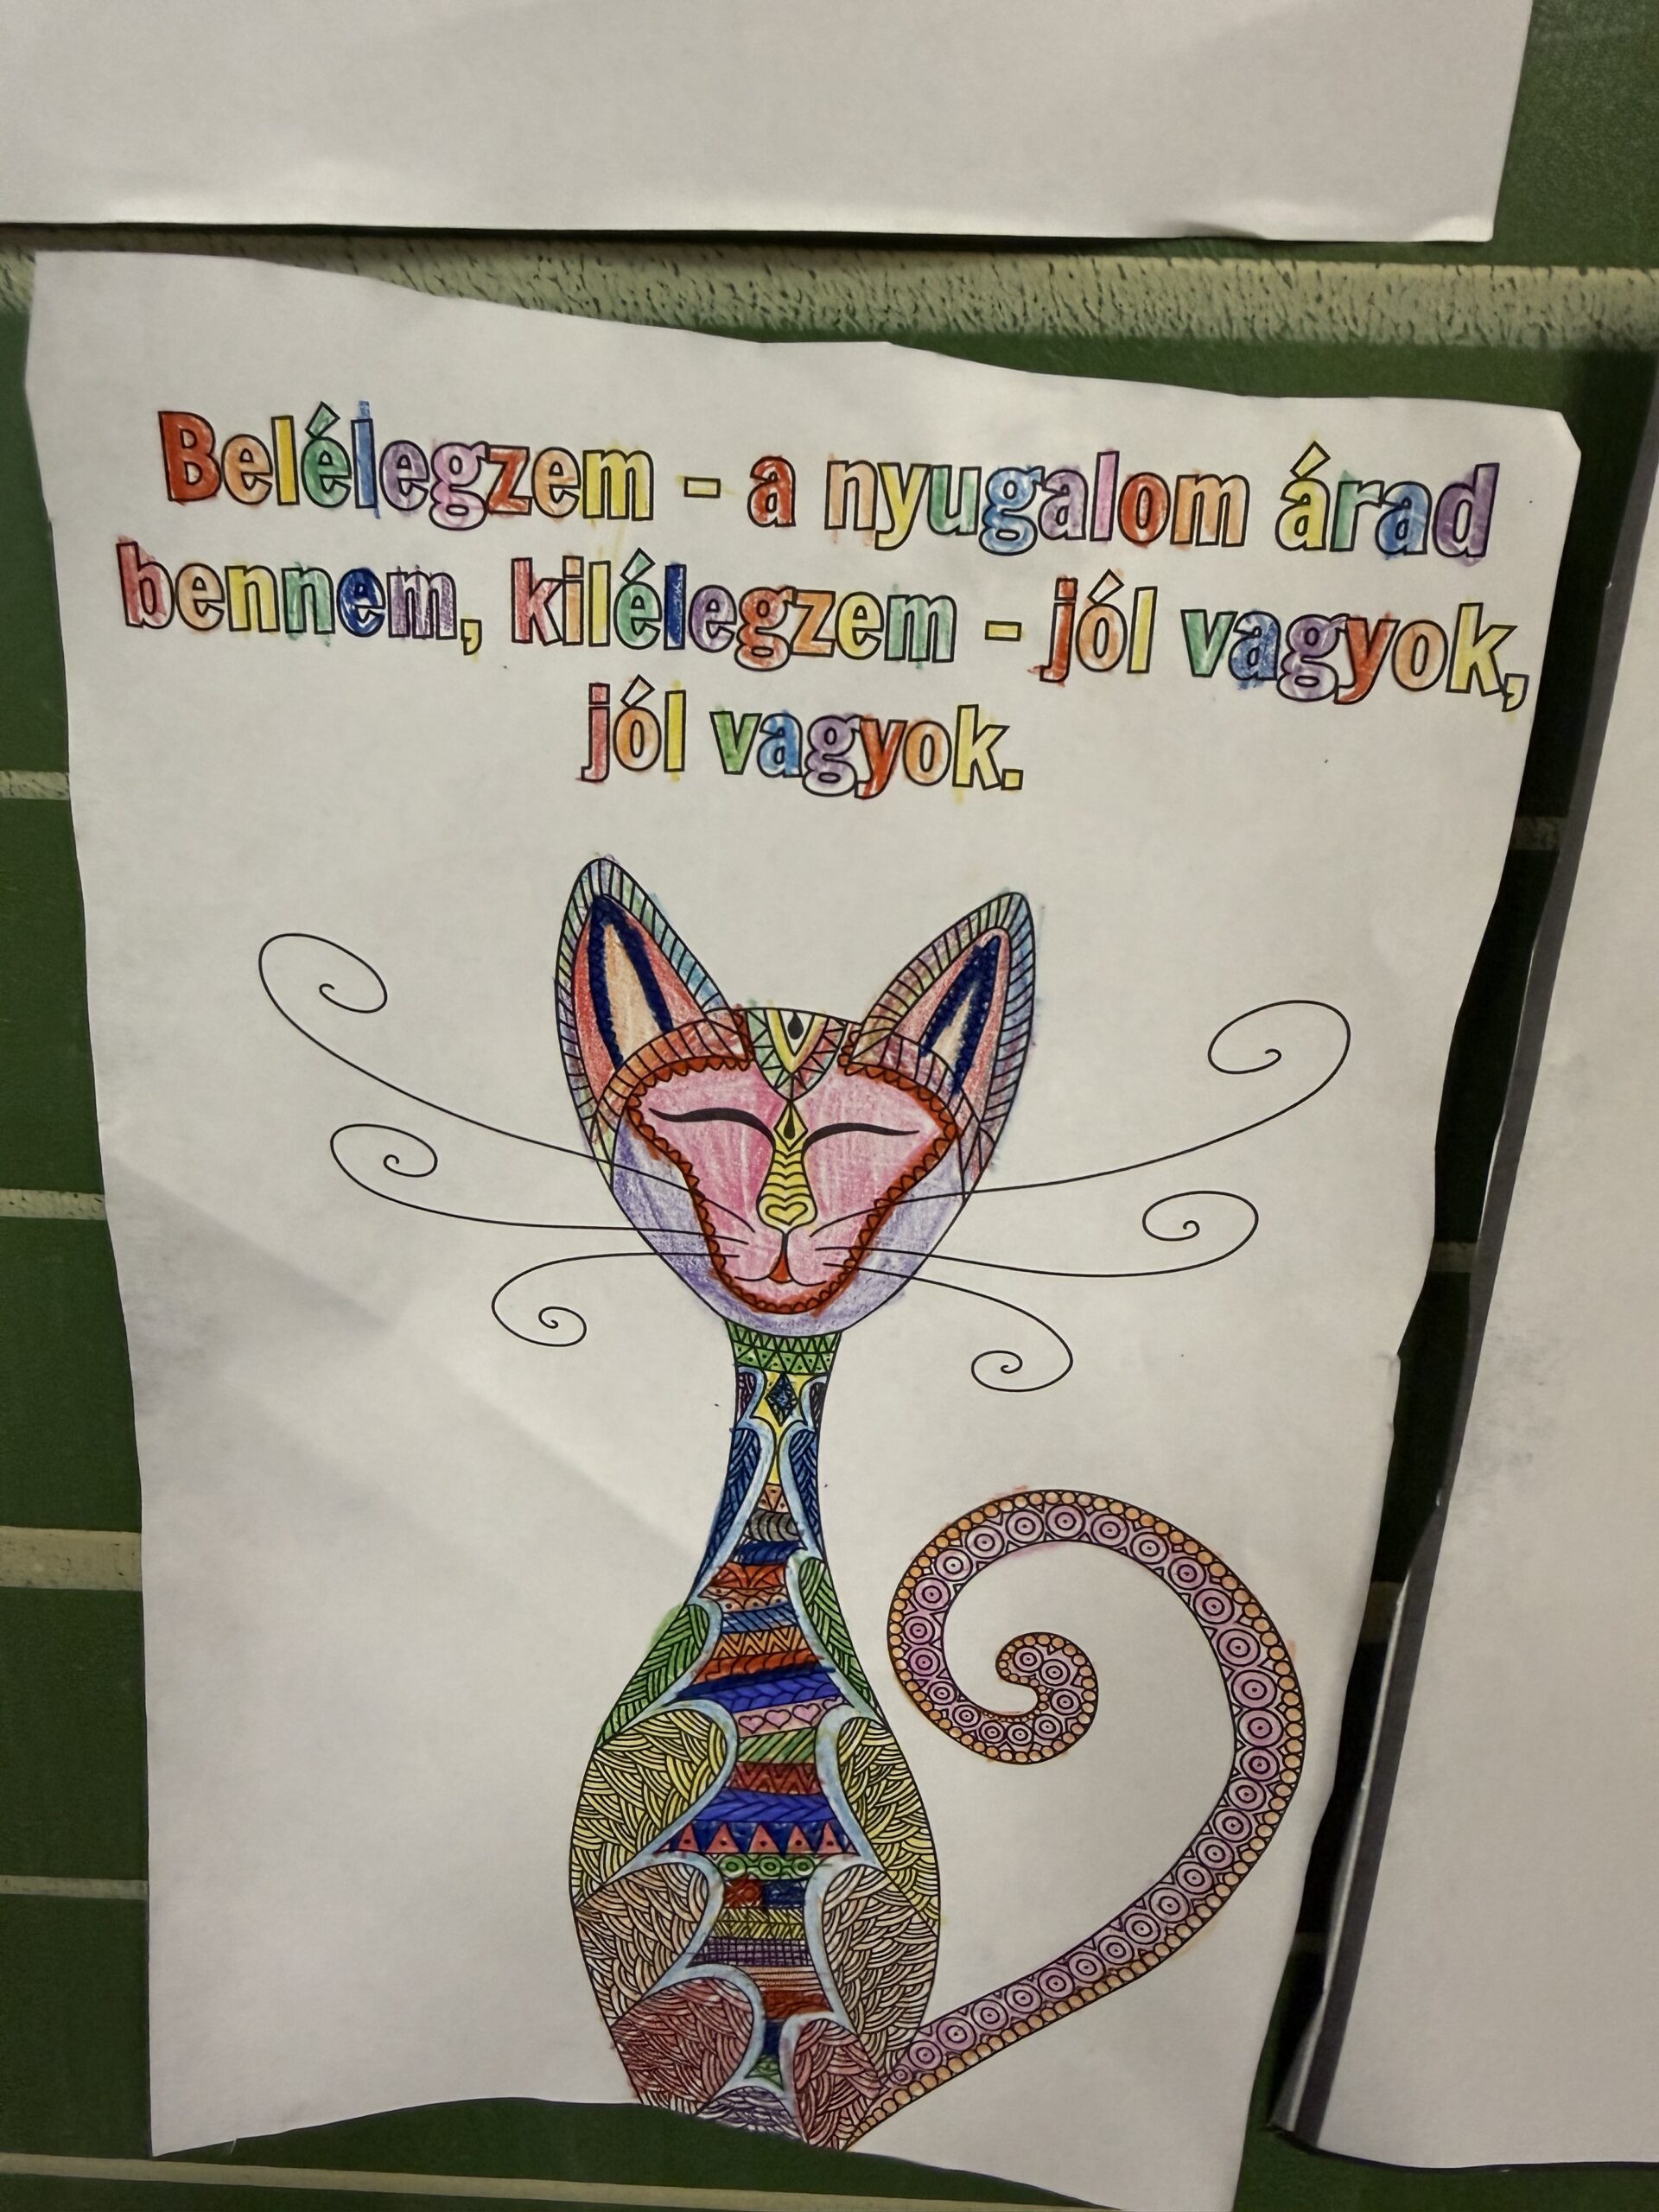 Belélegzem - a nyugalom árad
bennem, kilélegzem - jól vagyok,
jól vagyok.